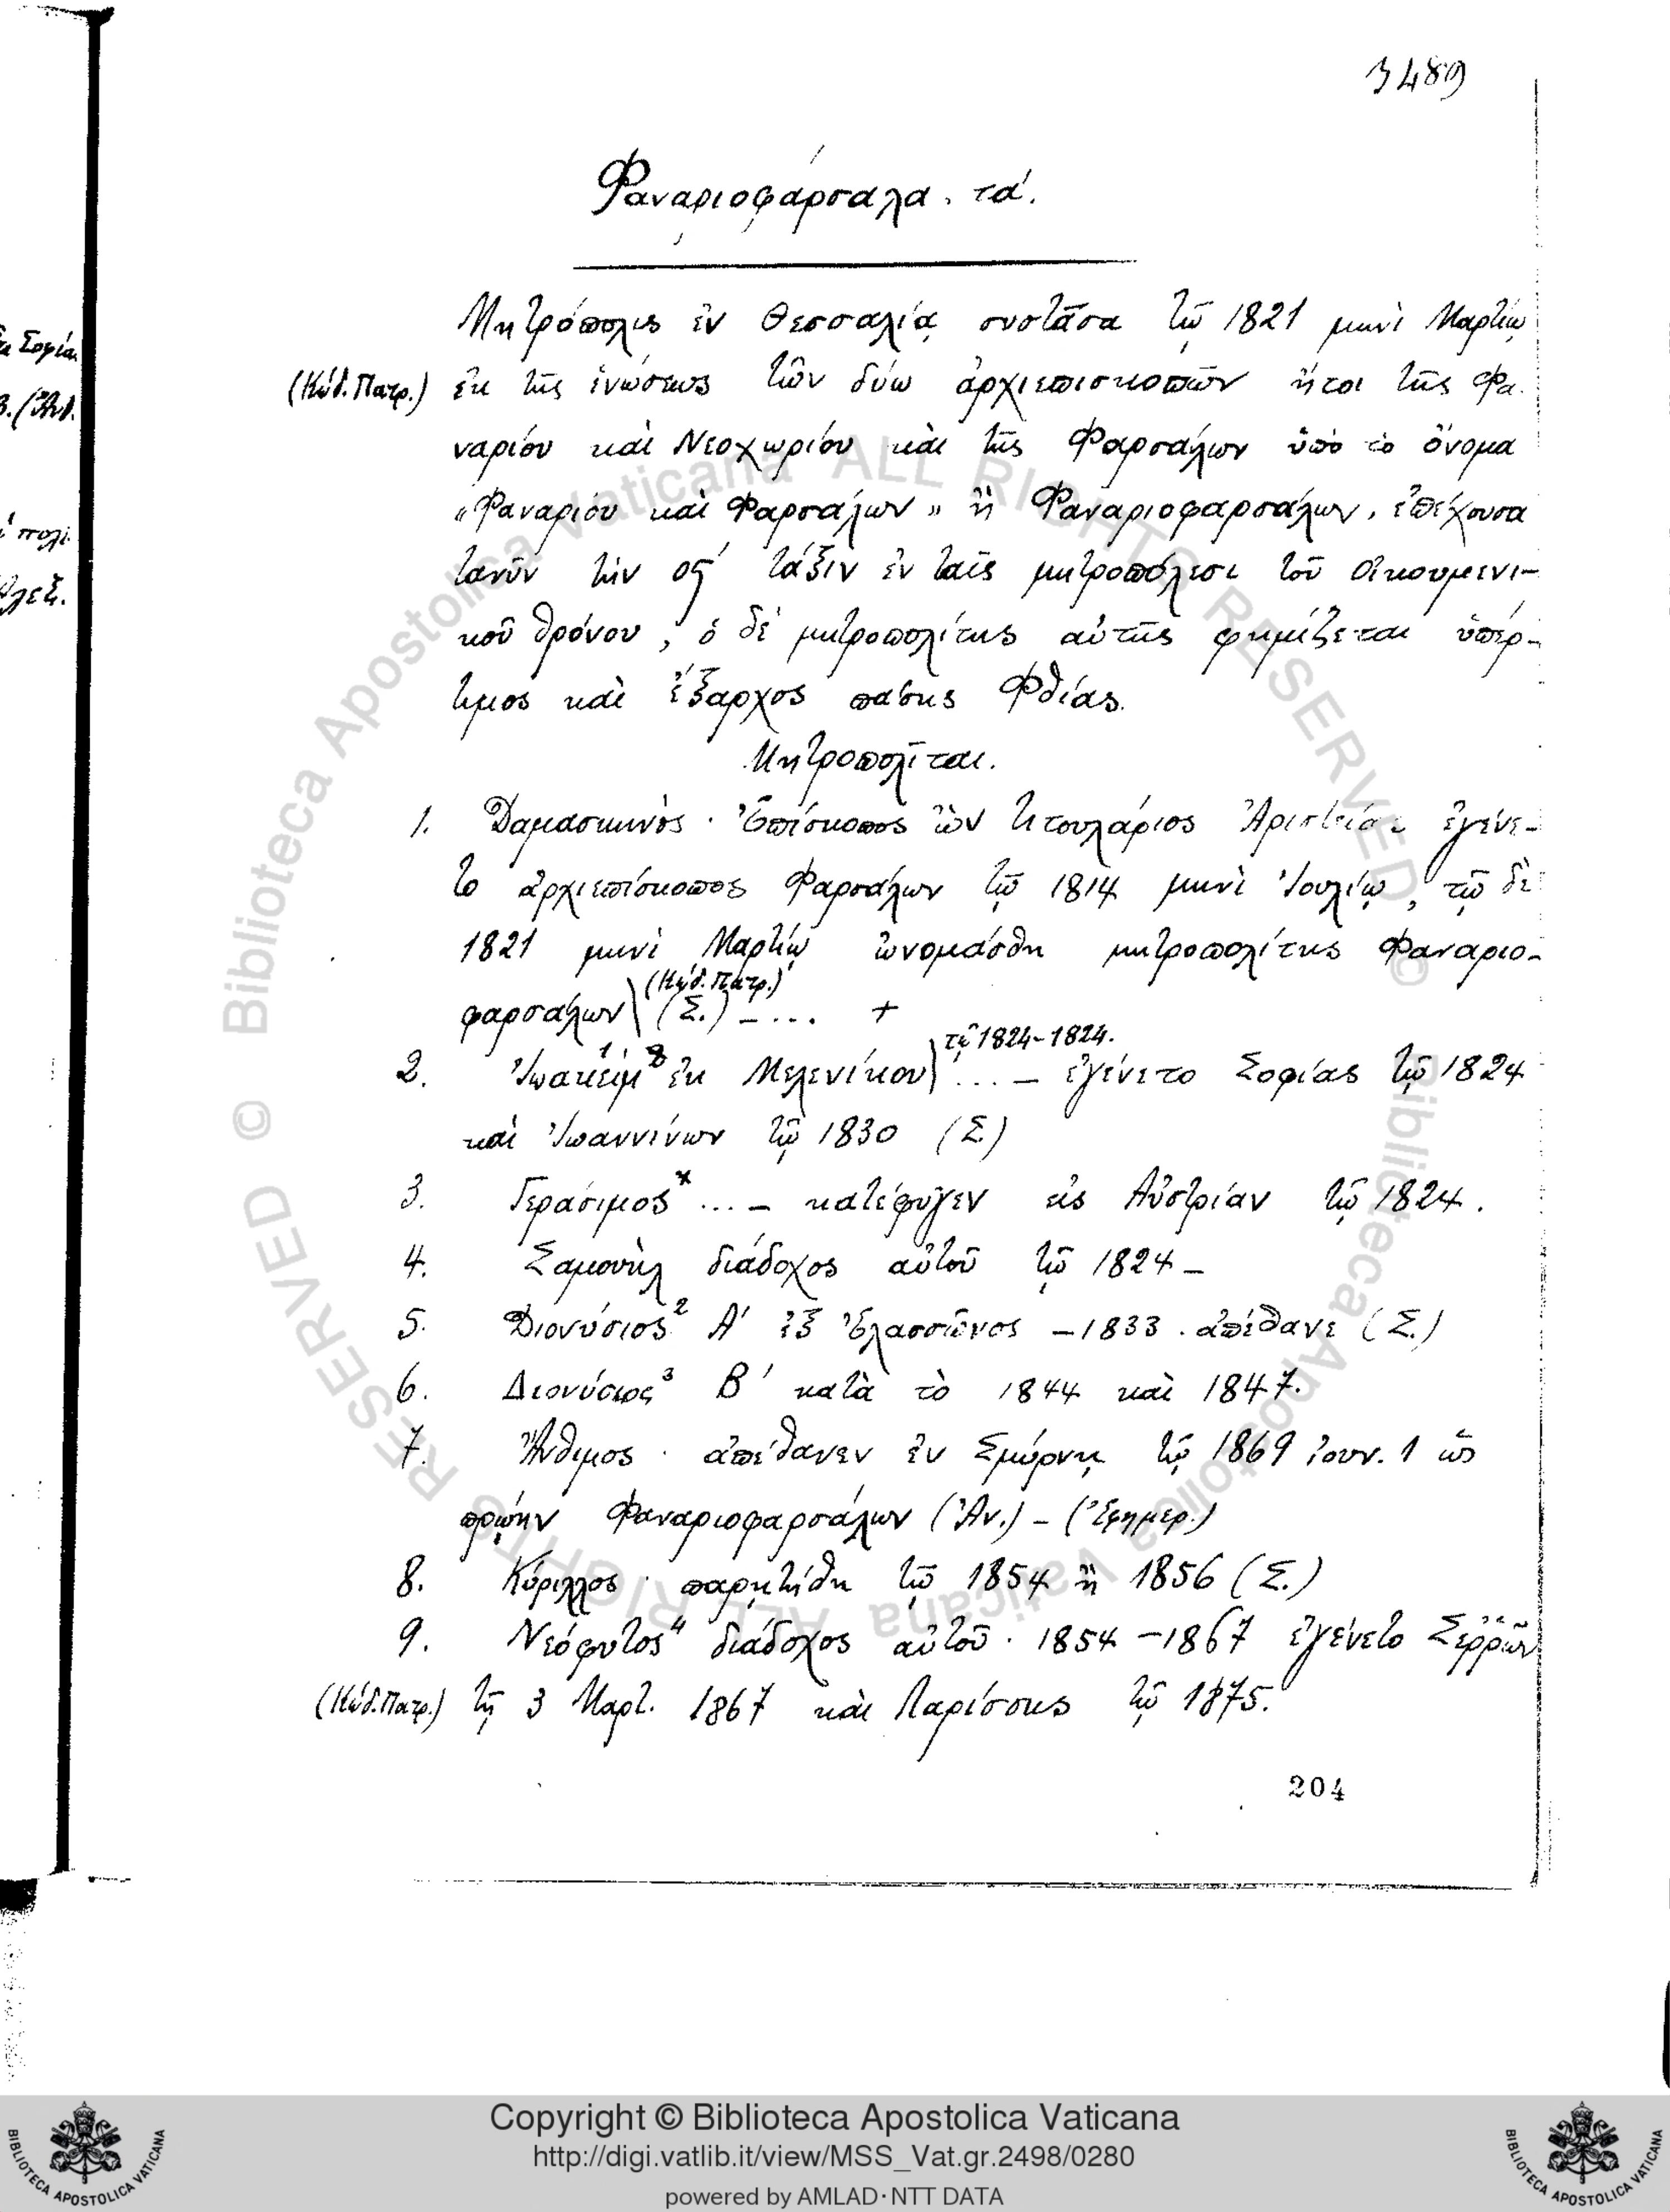 3489
Φαναριοφάρσαλα, τά.
Μητρόπολις ἐν Θεσσαλίᾳ συστᾶσα τῷ 1821 μηνὶ Μαρτίῳ
(Κώδ. Πατρ.) ἐκ τῆς ἑνώσεως τῶν δύω ἀρχιεπισκοπῶν ἤτοι τῆς Φα-
ναρίου καὶ Νεοχωρίου καὶ τῆς Φαρσάλων ὑπὸ τὸ ὄνομα
«Φαναρίου καὶ Φαρσάλων» ἢ Φαναριοφαρσάλων, ἐπέχουσα
τανῦν τὴν οϛ΄ τάξιν ἐν ταῖς μητροπόλεσι τοῦ Οἰκουμενι-
κοῦ θρόνου, ὁ δὲ μητροπολίτης αὐτῆς φημίζεται ὑπέρ-
τιμος καὶ ἔξαρχος πάσης Φθίας.
Μητροπολῖται.
1. Δαμασκηνός · Ἐπίσκοπος ὢν τιτουλάριος ἐγένε-
το ἀρχιεπίσκοπος Φαρσάλων τῷ 1814 μηνὶ Ἰουλίῳ, τῷ δὲ
1821 μηνὶ Μαρτίῳ ὠνομάσθη μητροπολίτης Φαναριο-
(Κώδ. Πατρ.)
φαρσάλων (Σ.) – ... +
τῷ 1824-1824.
2. Ἰωακεὶμ ἐκ Μελενίκου ... – ἐγένετο Σοφίας τῷ 1824
καὶ Ἰωαννίνων τῷ 1830 (Σ.)
3. Γεράσιμος* ... – κατέφυγεν εἰς Αὐστρίαν τῷ 1824.
4. Σαμουὴλ διάδοχος αὐτοῦ τῷ 1824 –
5. Διονύσιος² Α΄ ἐξ Ἐλασσῶνος – 1833 · ἀπέθανε (Σ.)
6. Διονύσιος³ Β΄ κατὰ τὸ 1844 καὶ 1847.
7. Ἄνθιμος · ἀπέθανεν ἐν Σμύρνῃ τῷ 1869 Ἰουν. 1 ὡς
πρώην Φαναριοφαρσάλων (Ἀν.) – (Ἐφημερ.)
8. Κύριλλος · παρῃτήθη τῷ 1854 ἢ 1856 (Σ.)
9. Νεόφυτος⁴ διάδοχος αὐτοῦ · 1854 – 1867 ἐγένετο Σερρῶν
(Κώδ. Πατρ.) τῇ 3 Μαρτ. 1867 καὶ Λαρίσσης τῷ 1875.
204
Σοφία
πολι
λεξ.
© Biblioteca Apostolica Vaticana ALL RIGHTS RESERVED
© Biblioteca Apostolica Vaticana ALL RIGHTS RESERVED
Copyright © Biblioteca Apostolica Vaticana
http://digi.vatlib.it/view/MSS_Vat.gr.2498/0280
powered by AMLAD·NTT DATA
BIBLIOTECA APOSTOLICA VATICANA
BIBLIOTECA APOSTOLICA VATICANA